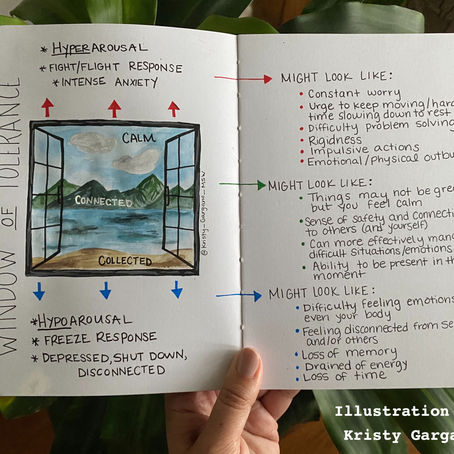 WINDOW OF TOLERANCE
* HYPERAROUSAL
* FIGHT/FLIGHT RESPONSE
* INTENSE ANXIETY
CALM
CONNECTED
COLLECTED
@Kristy_Gargano_MSW
* HYPOAROUSAL
* FREEZE RESPONSE
* DEPRESSED, SHUT DOWN,
DISCONNECTED
MIGHT LOOK LIKE:
• Constant worry
• Urge to keep moving/hard
time slowing down to rest
• Difficulty problem solving
• Rigidness
• Impulsive actions
• Emotional/physical outbu
MIGHT LOOK LIKE:
• Things may not be gre
but you feel calm
• Sense of safety and connecti
to others (and yourself)
• Can more effectively mana
difficult situations/emotions
• Ability to be present in th
moment
MIGHT LOOK LIKE:
• Difficulty feeling emotions
even your body
• Feeling disconnected from se
and/or others
• Loss of memory
• Drained of energy
• Loss of time
Illustration
Kristy Garga